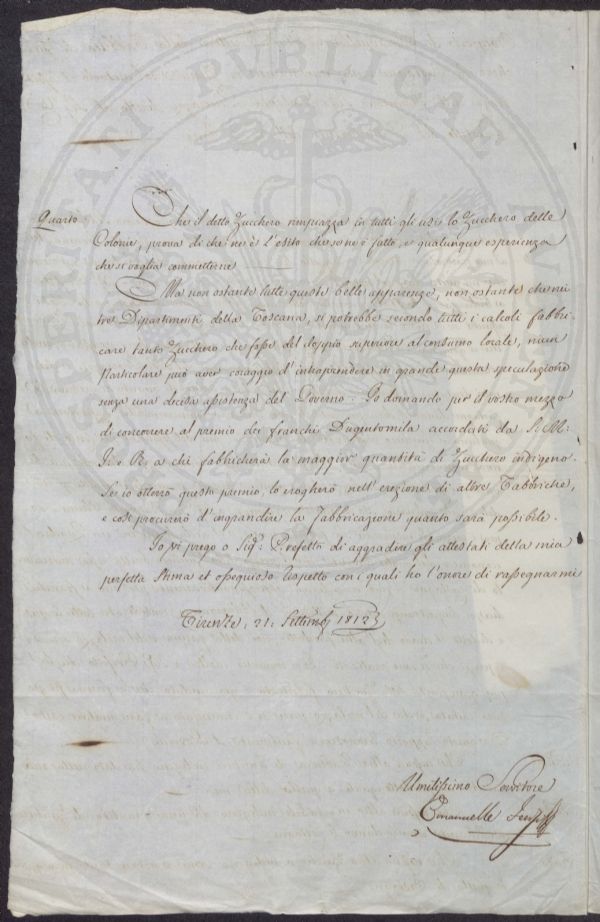 PERITATI PUBLICAE AU
Quarto
Che il detto Zucchero rimpiazza in tutti gli usi lo Zucchero delle
Colonie, prova di che ne è l'esito che se ne è fatto, e qualunque esperienza
che si voglia commetterne
Ma non ostante tutte queste belle apparenze, non ostante che nei
tre Dipartimenti della Toscana, si potrebbe secondo tutti i calcoli fabbri-
care tanto Zucchero che fosse del doppio superiore al consumo locale, niun
Particolare può aver coraggio d'intraprendere in grande questa speculazione
senza una decisa assistenza del Governo: Io domando per il vostro mezzo
di concorrere al premio dei franchi Dugentomila accordati da S: M:
I: e R: a chi fabbricherà la maggior quantità di Zucchero indigeno.
Se io otterrò questo premio, lo erogherò nell'erezione di altre Fabbriche,
e così procurerò d'ingrandire la Fabbricazione quanto sarà possibile.
Io vi prego o Sig: Prefetto di aggradire gli attestati della mia
perfetta stima et ossequioso rispetto con i quali ho l'onore di rassegnarmi
Firenze, 21: Settemb 1812
Umilissimo Servitore
Emanuelle